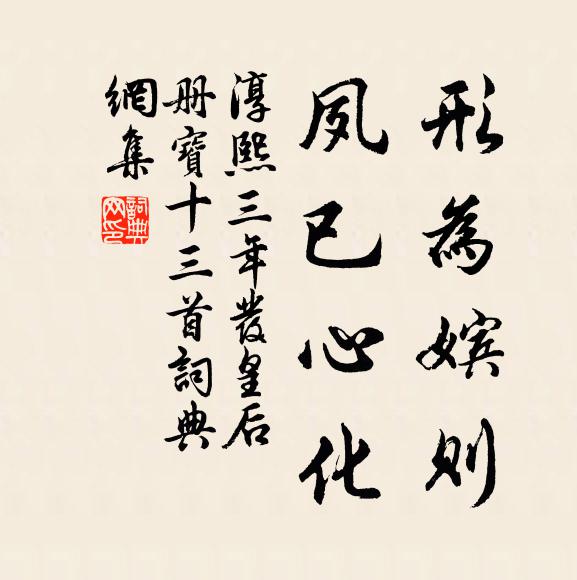 形為嬪則
夙已心化
淳熙三年發皇后
册寶十三首詞典
網集
詞典網印